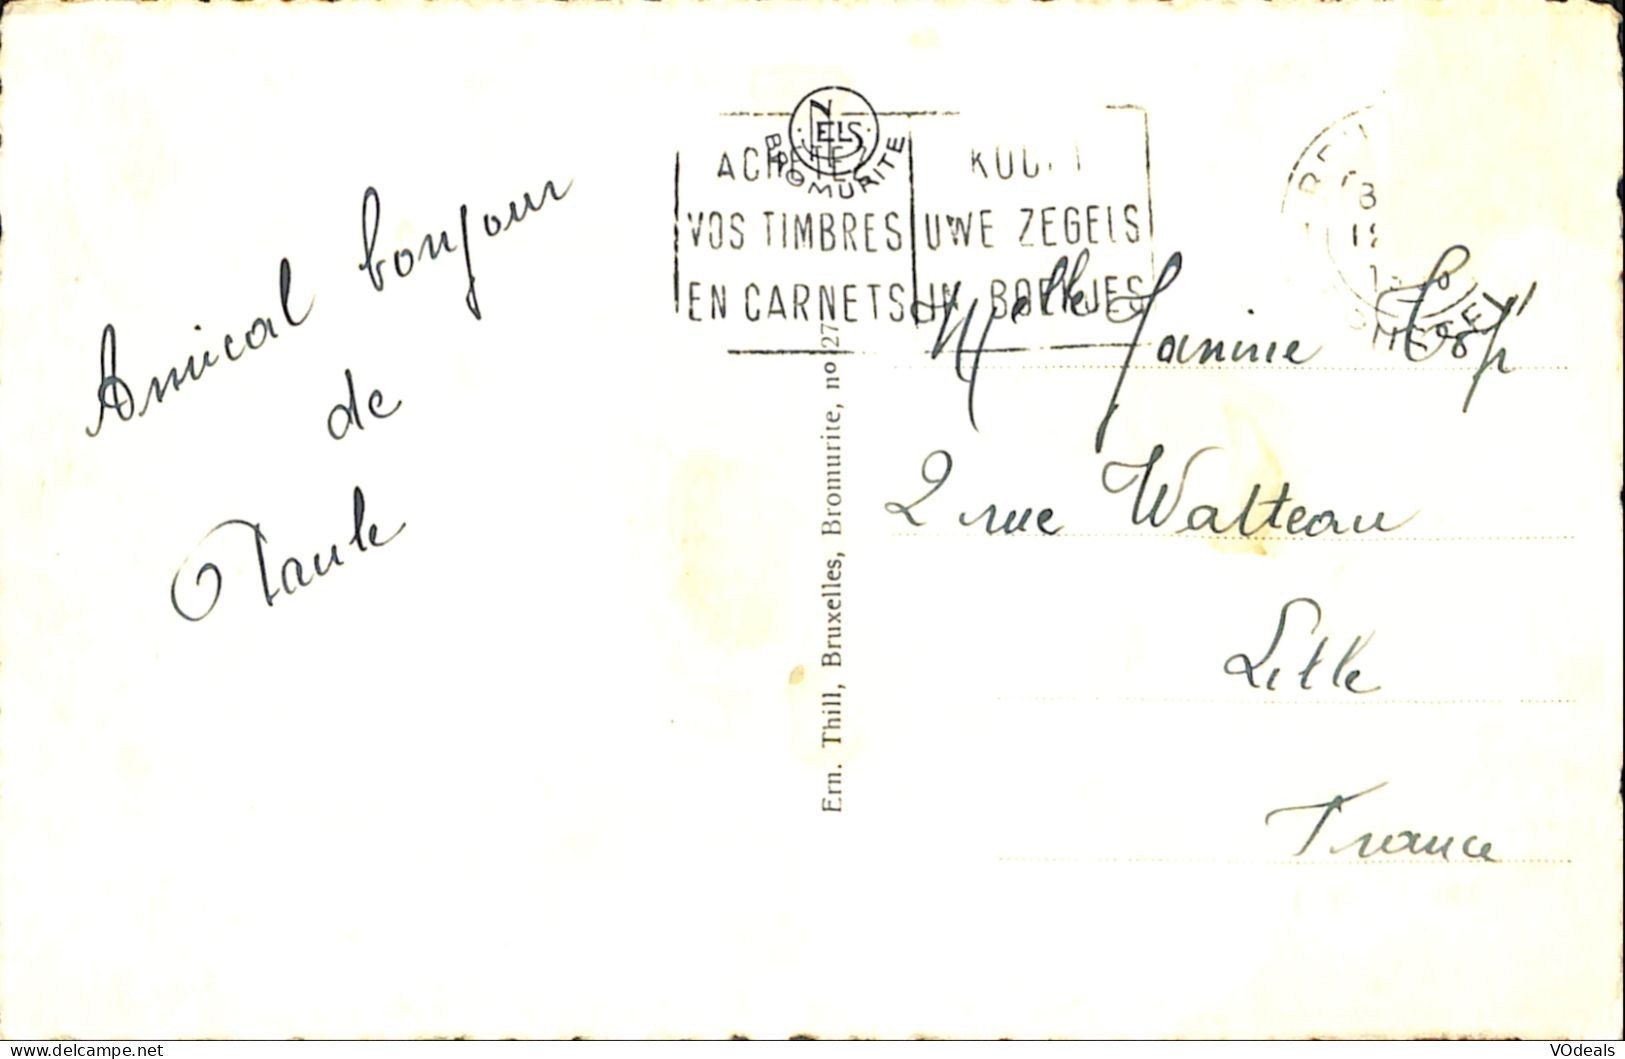 Amical bonjour
de
Paule
NELS
BROMURITE
ACHETEZ
VOS TIMBRES
EN CARNETS
UWE ZEGELS
IN BOEKJES
Ern. Thill, Bruxelles, Bromurite, no 27
Melle Janine
2 rue Watteau
Lille
France
delcampe.net
VOdeals